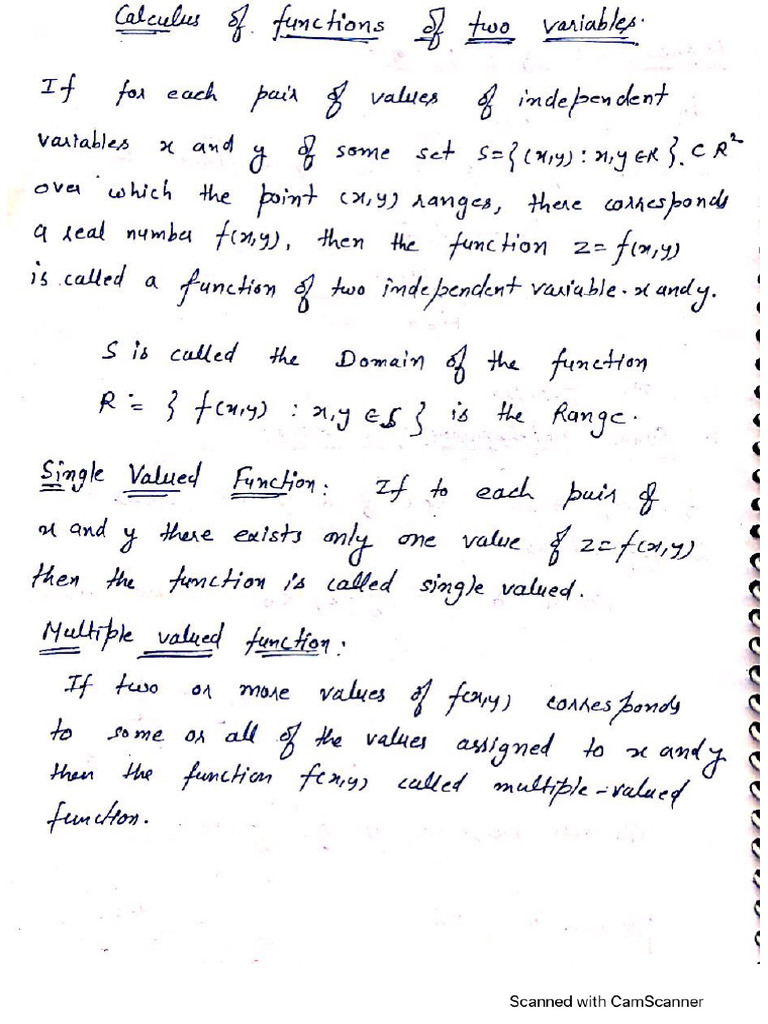 Calculus of functions of two variables.
If for each pair of values of independent
variables x and y of some set S={(x,y) : x,y ∈R }. ⊂ R²
over which the point (x,y) ranges, there corresponds
a real number f(x,y), then the function z= f(x,y)
is called a function of two independent variable. x and y.
S is called the Domain of the function
R = { f(x,y) : x,y ∈ S } is the Range.
Single Valued Function: If to each pair of
x and y there exists only one value of z=f(x,y)
then the function is called single valued.
Multiple valued function:
If two or more values of f(x,y) corresponds
to some or all of the values assigned to x and y
then the function f(x,y) called multiple-valued
function.
Scanned with CamScanner